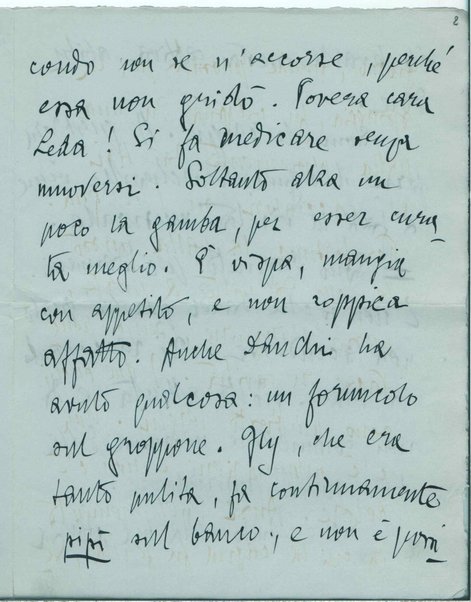 2
condo non se n'accorse, perché
essa non gridò. Povera cara
Leda! Si fa medicare senza
muoversi. Soltanto alza un
poco la gamba, per esser cura-
ta meglio. È vispa, mangia
con appetito, e non zoppica
affatto. Anche Dandi ha
avuto qualcosa: un foruncolo
sul groppone. Fly, che era
tanto pulita, fa continuamente
pipì sul banco, e non è